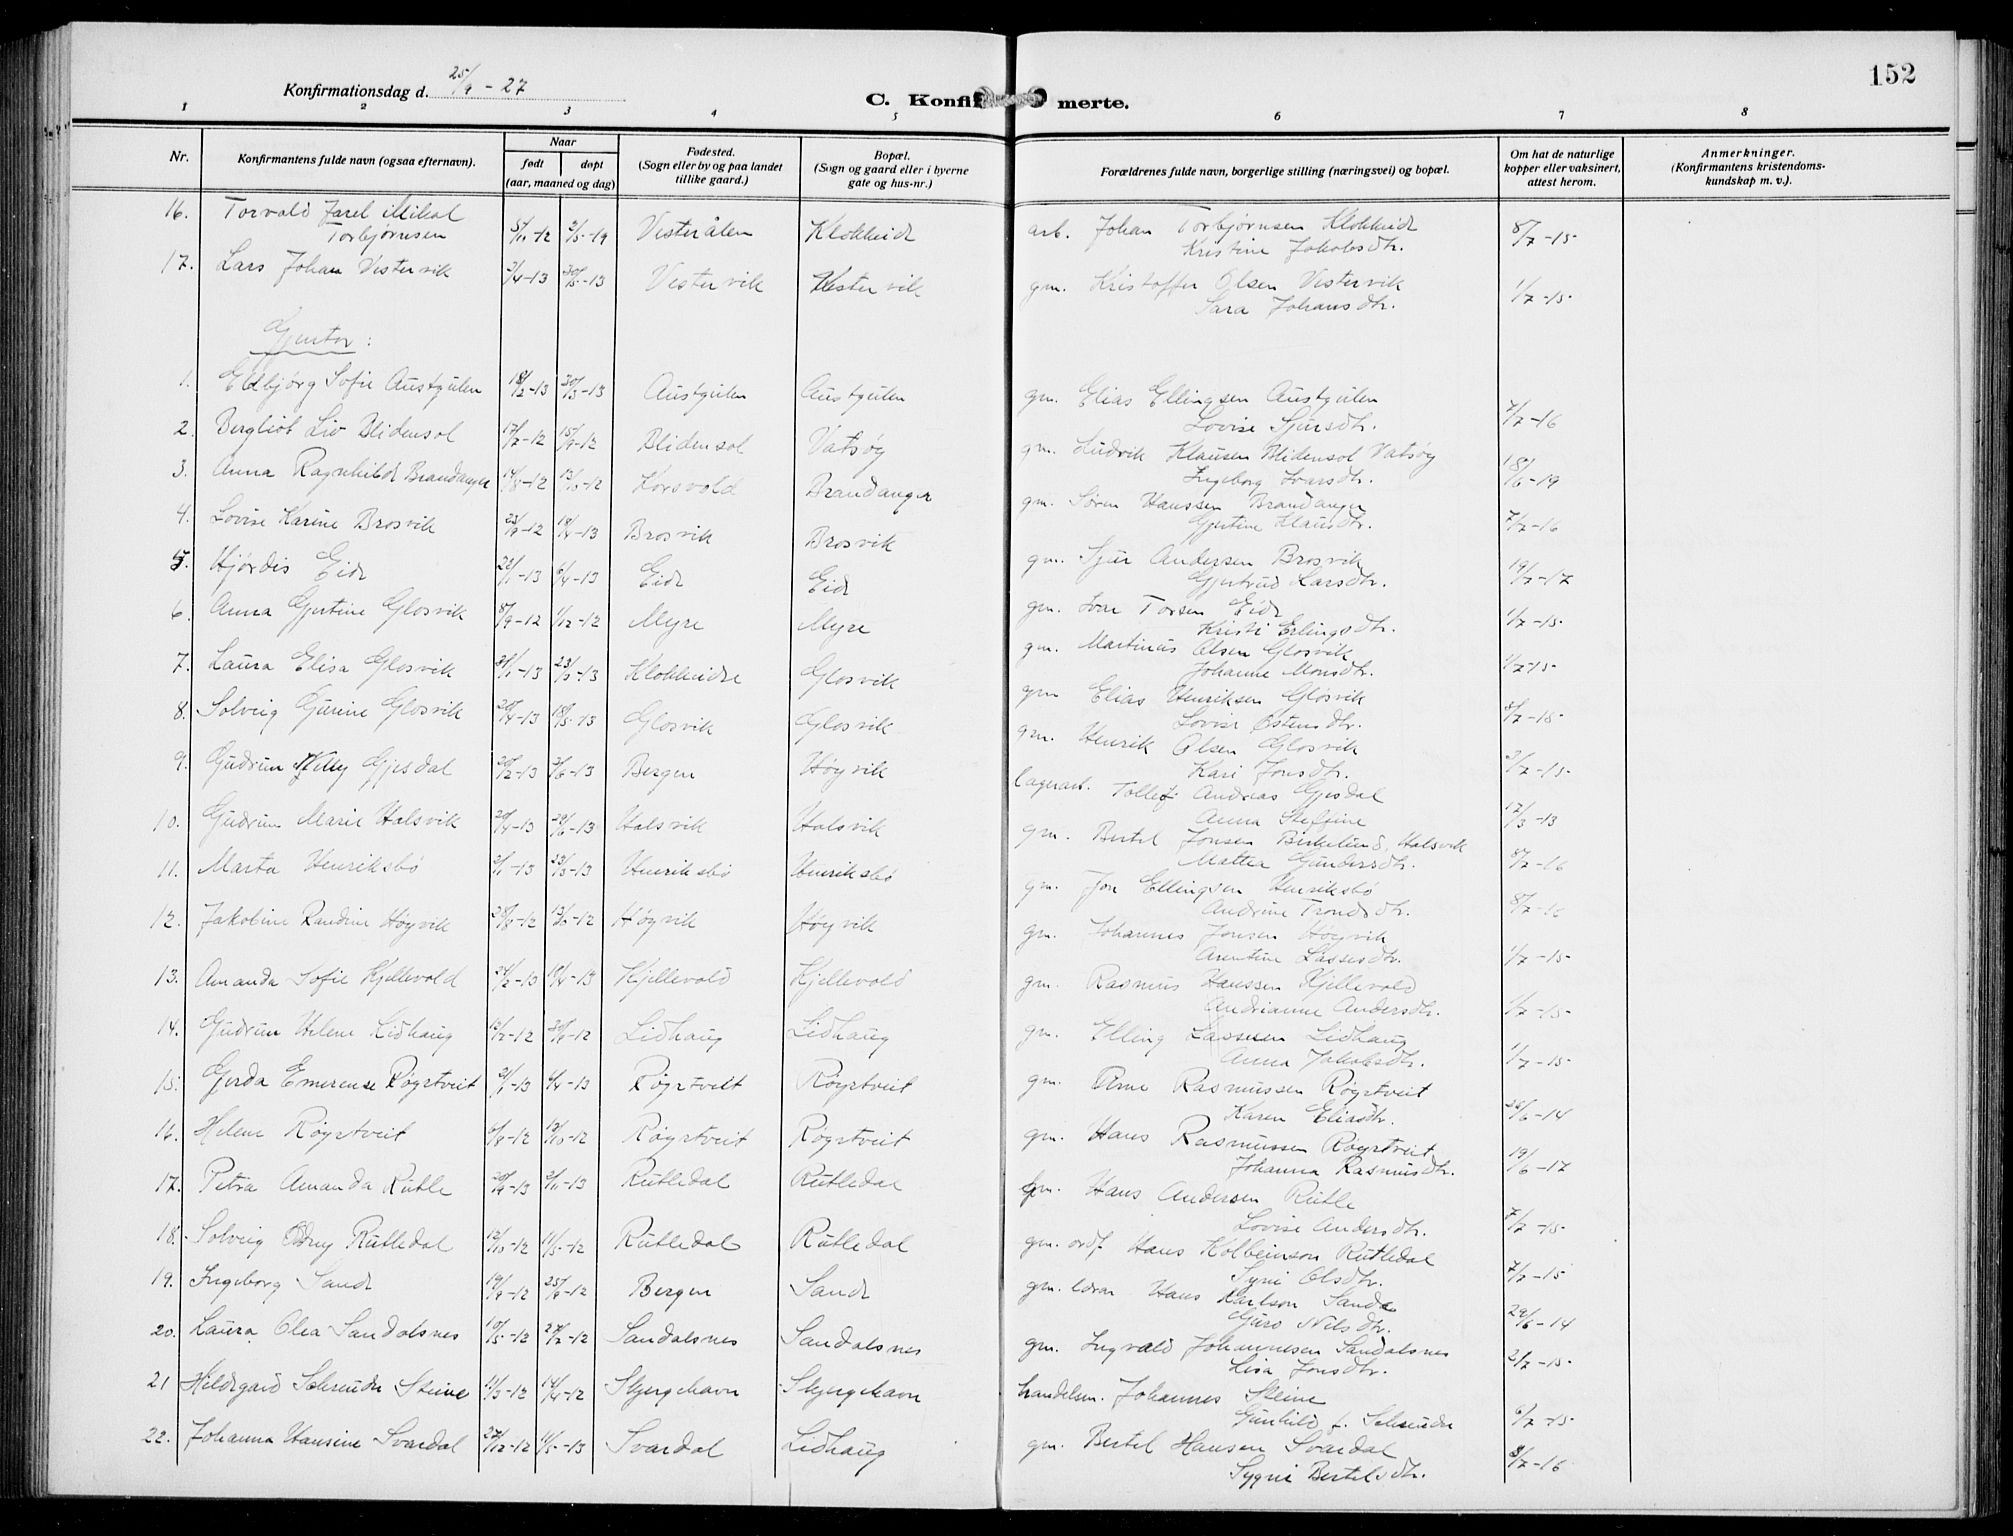 152
Konfirmationsdag d. 25/9 - 27
C. Konfirmerte.
1 2 3 4 5 6 7 8
Nr.
Konfirmantens fulde navn (ogsaa efternavn).
Naar
født døpt
(aar, maaned og dag)
Fødested.
(Sogn eller by og paa landet
tillike gaard.)
Bopæl.
(Sogn og gaard eller i byerne
gate og hus-nr.)
Forældrenes fulde navn, borgerlige stilling (næringsvei) og bopæl.
Om hat de naturlige
kopper eller vaksinert,
attest herom.
Anmerkninger.
(Konfirmantens kristendoms-
kundskap m. v.).
16. Torvald Mikal Vesterålen Klokkeide arb. Johan Torbjørnsen Klokkeide 8/7-15
Torbjørnsen Kristine Jakobsdtr.
17. Lars Johan Vestervik 3/4-13 Vestervik Vestervik gm. Kristoffer Olsen Vestervik 1/7-15
Sara Johansdtr.
Gjentor:
1. Eldbjørg Sofie Austgulen 18/2-13 30/3-13 Austgulen Austgulen gm. Elias Ellingsen Austgulen 7/7-16
Lovise Sjursdtr.
2. Bergliot Liv Blidensol 17/7-12 15/9-12 Blidensol Vatsøy gm. Ludvik Klausen Blidensol Vatsøy 18/6-19
Ingeborg Ivarsdtr.
3. Anna Ragnhild Brandanger 14/8-12 Korsvold Brandanger gm. Søren Hanssen Brandanger 7/7-16
Gjertine Klausdtr.
4. Lovise Karine Brosvik 23/9-12 18/4-13 Brosvik Brosvik gm. Sjur Andersen Brosvik 19/7-17
Gjertrud Larsdtr.
5. Hjørdis Eide 22/1-13 6/4-13 Eide Eide gm. Ivar Torsen Eide 1/7-15
Kristi Erlingsdtr.
6. Anna Gjertine Glosvik 8/9-12 1/12-12 Myre Myre gm. Martinus Olsen Glosvik 1/7-15
Johanne Monsdtr.
7. Laura Elisa Glosvik 31/1-13 23/3-13 Klokkeide Glosvik gm Elias Henriksen Glosvik 8/7-15
Lovise Østensdtr.
8. Solveig Gurine Glosvik 20/4-13 18/5-13 Glosvik Glosvik gm. Henrik Olsen Glosvik 3/7-15
Kari Jonsdtr.
9. Gudrun Nelly Gjesdal 20/2-13 Bergen Høyvik lagerarb. Tollef Andreas Gjesdal 17/3-13
Anna Steffine
10. Gudrun Marie Halsvik 20/4-13 29/6-13 Halsvik Halsvik gm. Bertel Jonsen Birkelund, Halsvik 8/7-16
Mathea Gundersdtr.
11. Marta Henriksbø 23/3-13 Henriksbø Henriksbø gm. Jon Ellingsen Henriksbø 8/7-16
Andrine Trondsdtr.
12. Jakobine Randine Høyvik 28/8-12 Høyvik Høyvik gm. Johannes Jonsen Høyvik 1/7-15
Arentine Lassesdtr.
13. Amanda Sofie Kjellevold 24/2-13 Kjellevold Kjellevold gm. Rasmus Hanssen Kjellevold 1/7-15
Andrianne Andersdtr.
14. Gudrun Helene Lidhaug Lidhaug Lidhaug gm. Elling Lassesen Lidhaug 1/7-15
Anna Jakobsdtr.
15. Gerda Emerense Røyrtveit 6/4-13 Røyrtveit Røyrtveit gm. Arne Rasmussen Røyrtveit 28/6-14
Karen Eliasdtr.
16. Helene Røyrtveit 13/10-12 Røyrtveit Røyrtveit gm. Hans Rasmussen Røyrtveit 19/6-17
Johanna Rasmusdtr.
17. Petra Amanda Rutle Rutledal Rutledal gm. Hans Andersen Rutle 7/7-15
Lovise Andersdtr.
18. Solveig Odny Rutledal 12/10-12 Rutledal Rutledal gm. ordf. Hans Kolbeinson Rutledal 7/7-15
Syni Olsdtr.
19. Ingeborg Sande 19/9-12 25/9-12 Bergen Sande gm. lærar Hans Karlson Sande 29/6-14
Guro Nilsdtr.
20. Laura Olea Sandalsnes 10/5-12 Sandalsnes Sandalsnes gm. Ingvald Johannesen Sandalsnes 2/7-15
Lisa Jonsdtr.
21 Hildegard Schreuder Steine 11/3-12 14/4-12 Skjergehavn Skjergehavn handelsm. Johannes Steine 6/7-15
Gunhild f. Schreuder
22. Johanna Hansine Svardal 27/12-12 Svardal Lidhaug gm. Bertel Hansen Svardal 8/7-16
Sygni Bertelsdtr.